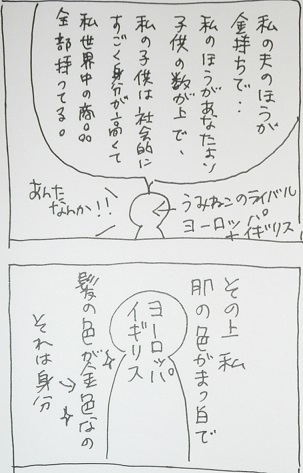 私の夫のほうが
金持ちで・・
私のほうがあなたより
子供の数が上で、
私の子供は社会的に
すごく身分が高くて
私世界中の商品
全部持ってる。
うみねこのライバル
ヨーロッパ
+イギリス
あんた
なんか!!
その上私
肌の色がまっ白で
ヨーロッパ
イギリス
髪の色が金色なの
それは身分